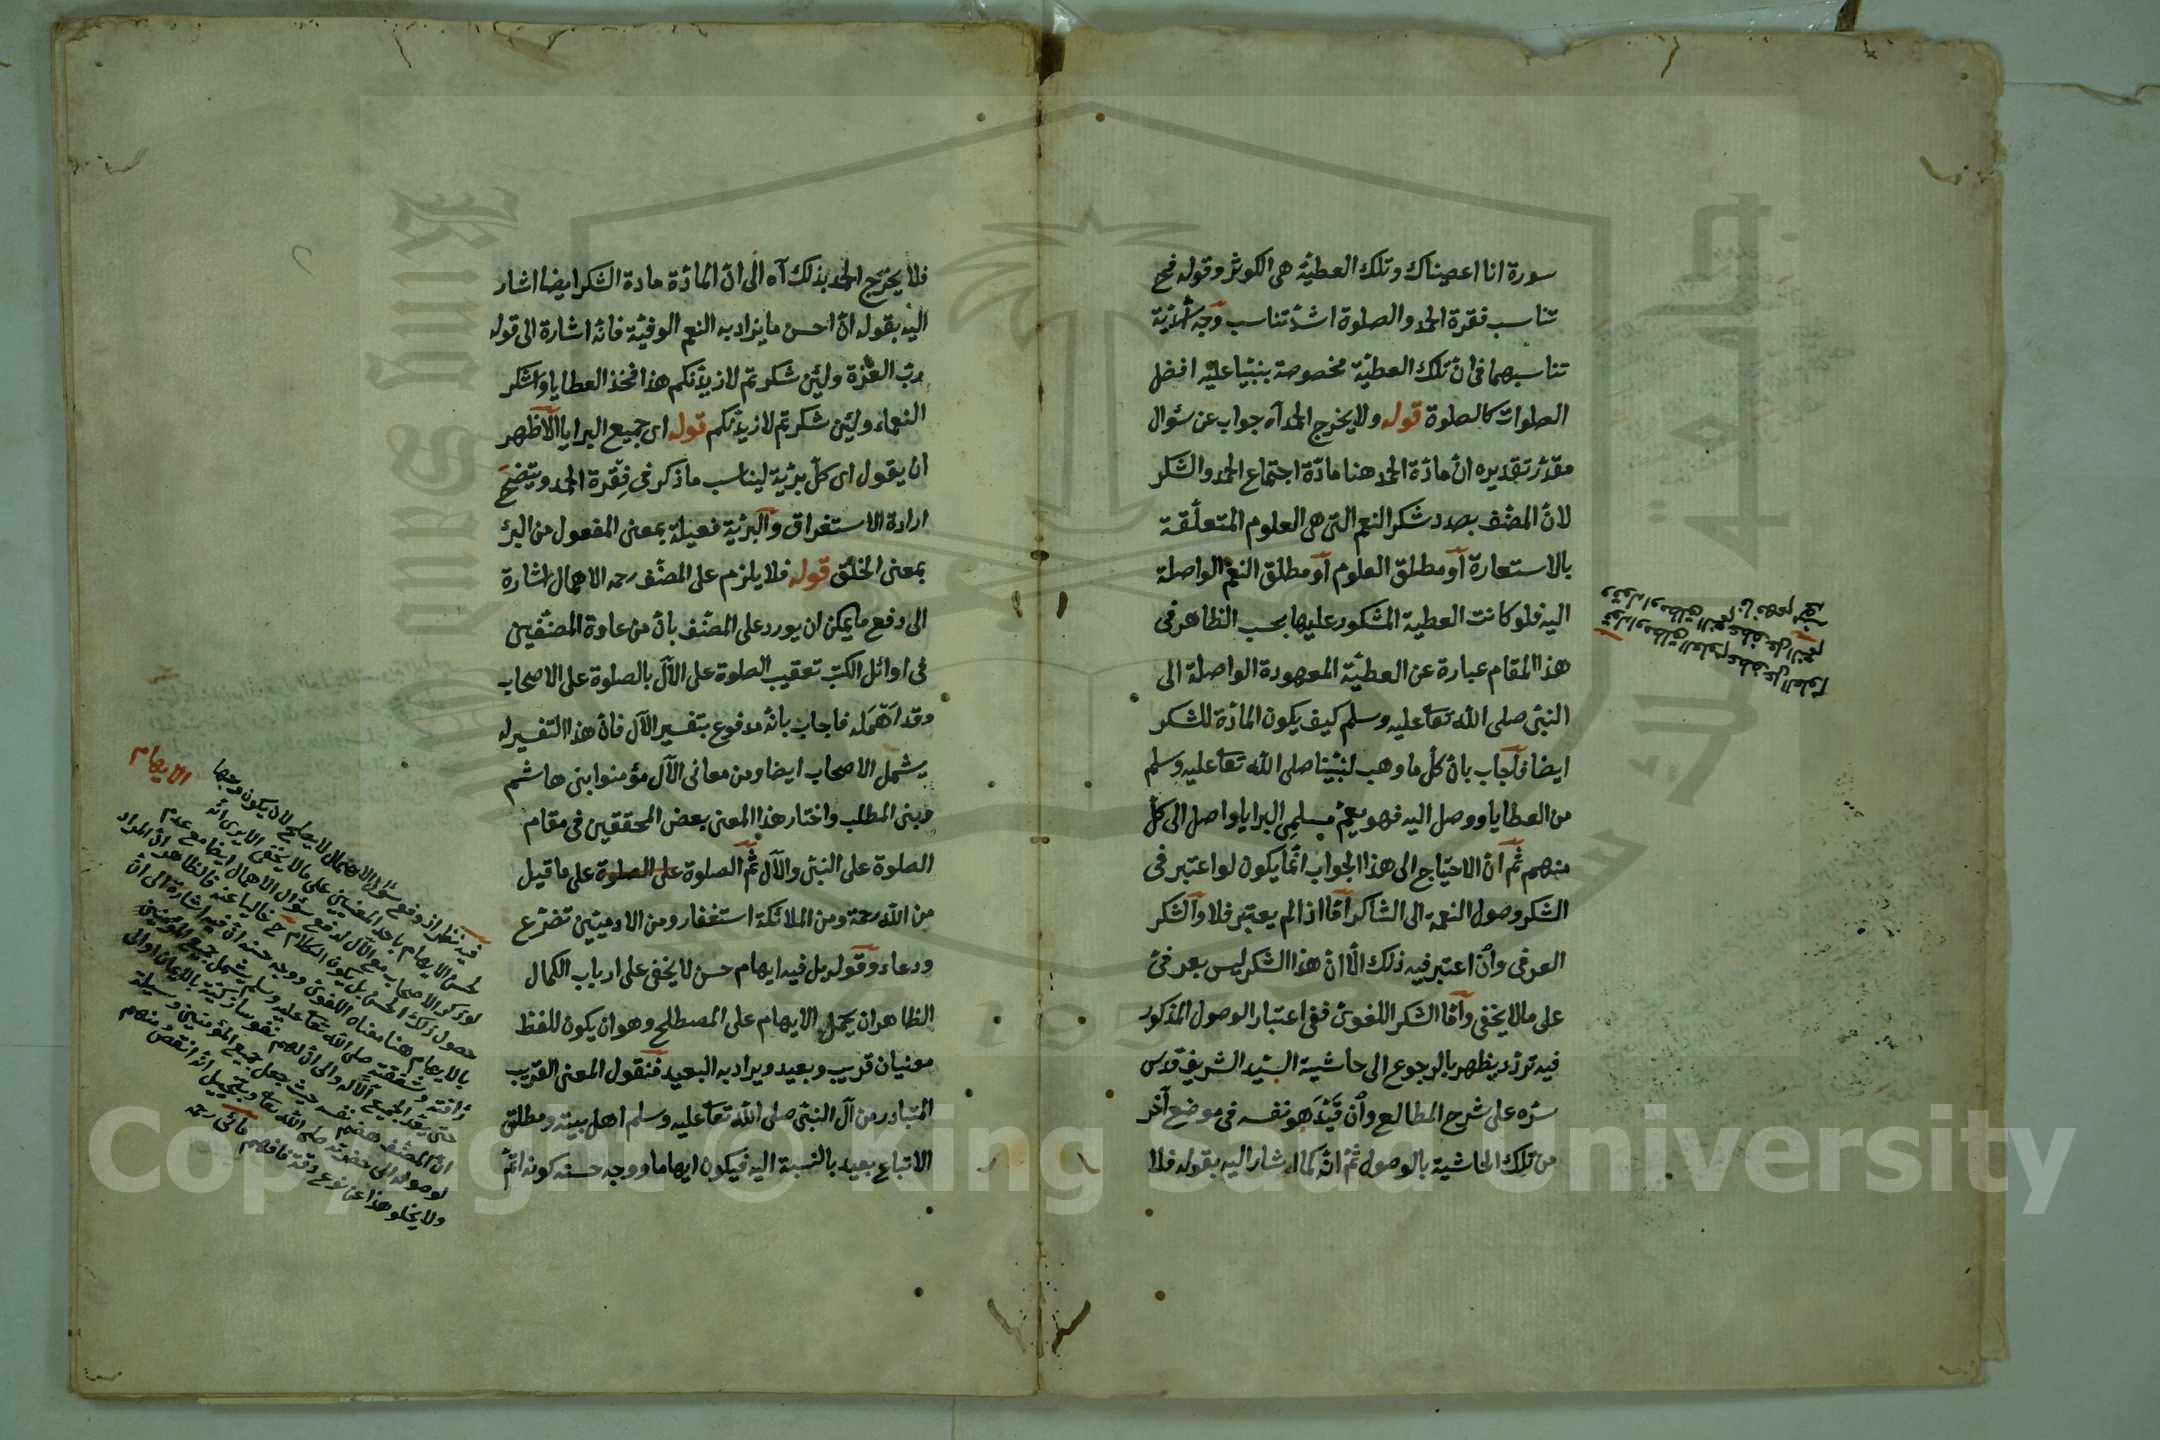 سورة انا اعطيناك وتلك العطيّة هى الكوثر وقوله فح
تناسب فقرة الحمد والصلوة اشدّ تناسب وجه اشدّية
تناسبهما فى انّ تلك العطيّة مخصوصة بنبيّنا عليه افضل
الصلوات كالصلوة قوله ولا يخرج الحمد آه جواب عن سؤال
مقدّر تقديره انّ مادّة الحمد هنا مادّة اجتماع الحمد والشكر
لانّ المصنّف بصدد شكر النعم التى هى العلوم المتعلّقة
بالاستعارة أو مطلق العلوم أو مطلق النعم الواصلة
اليه فلو كانت العطية المشكور عليها بحسب الظاهر فى
هذا المقام عبارة عن العطيّة المعهودة الواصلة الى
النبىّ صلى اللّه تعا عليه وسلم كيف يكون المادّة للشكر
ايضا فاجاب بانّ كلّ ما وهب لنبيّنا صلى اللّه تعا عليه وسلم
من العطايا ووصل اليه فهو يعمّ مسلمى البرايا واصل الى كلّ
منهم ثمّ انّ الاحتياج الى هذا الجواب انّما يكون لو اعتبر فى
الشكر وصول النعمة الى الشاكر امّا اذا لم يعتبر فلا والشكر
العرفى وان اعتبر فيه ذلك الّا انّ هذا الشكر ليس بعرفىّ
على ما لا يخفى وامّا الشكر اللغوىّ ففى اعتبار الوصول المذكور
فيه تردّد يظهر بالرجوع الى حاشية السيّد الشريف قدس
سرّه على شرح المطالع وان قيّد هو نفسه فى موضع آخر
من تلك الحاشية بالوصول ثمّ انّه كما اشار اليه بقوله فلا
قوله او مطلق العلوم عطف على العلوم
وقوله او مطلق النعم عطف على النعم
فلا يخرج الحمد بذلك آه الى انّ المادّة مادة الشكر ايضا اشار
اليه بقوله انّ احسن ما يزاد به النعم الوفيّة فانّه اشارة الى قوله
ربّ العزّة ولئن شكرتم لازيدنّكم هذا فخذ العطايا واشكر
النعماء ولئن شكرتم لازيدنّكم قوله اى جميع البرايا الاظهر
ان يقول اى كلّ بريّة ليناسب ما ذكر فى فقرة الحمد ويتضح
ارادة الاستغراق والبريّة فعيلة بمعنى المفعول من البرء
بمعنى الخلق قوله فلا يلزم على المصنّف رحمه الاهمال اشارة
الى دفع ما يمكن ان يورد على المصنّف بانّ من عادة المصنّفين
فى اوائل الكتب تعقيب الصلوة على الآل بالصلوة على الاصحاب
وقد اهمله فاجاب بانّه مدفوع بتفسير الآل فانّ هذا التفسير له
يشمل الاصحاب ايضا ومن معانى الآل مؤمنوا بنى هاشم
وبنى المطلب واختار هذا المعنى بعض المحققين فى مقام
الصلوة على النبىّ والآل ثمّ الصلوة على الصلوة على ما قيل
من اللّه رحمة ومن الملائكة استغفار ومن الادميّين تضرّع
ودعاء وقوله بل فيه ايهام حسن لا يخفى على ارباب الكمال
الظاهر ان يحمل الايهام على المصطلح وهو ان يكون للفظ
معنيان قريب وبعيد ويراد به البعيد فنقول المعنى القريب
المتبادر من آل النبىّ صلى اللّه تعا عليه وسلم اهل بيته ومطلق
الاتباع بعيد بالنسبة اليه فيكون ايهاما ووجه حسنه كونه اتمّ
الايهام
فيه نظر اذ دفع سؤال الاهمال لا يصلح لان يكون وجها
لحسن الايهام باحد المعنيين على ما لا يخفى الا يرى انّه
لو ذكر الاصحاب مع الآل لدفع سؤال الاهمال ايضا مع عدم
حصول ذلك الحسن بل يكون الكلام ح خاليا عنه فالظاهر انّ المراد
بالايهام هنا معناه اللغوىّ ووجه حسنه انّ فيه اشارة الى انّ
رأفته وشفقته صلى اللّه تعا عليه وسلم يشمل جميع المؤمنين
ولا يخلو هذا عن نوع دقة فافهم